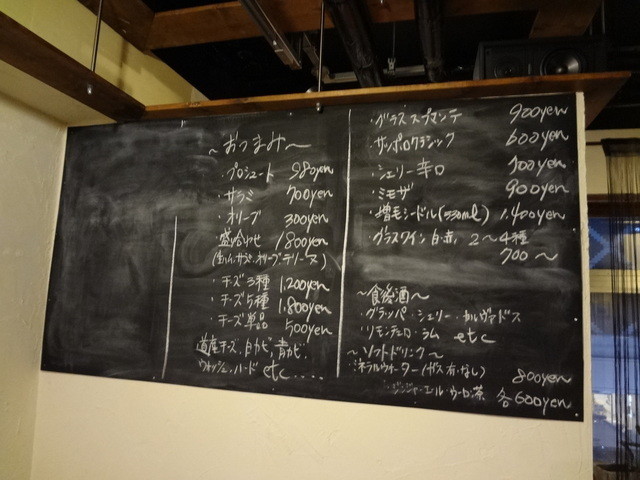 ～おつまみ～
・プロシュート 980yen
・サラミ 700yen
・オリーブ 300yen
・盛り合わせ 1,800yen
(生ハム、サラミ、オリーブ、テリーヌ)
・チーズ3種 1,200yen
・チーズ5種 1,800yen
・チーズ単品 500yen
道産チーズ、白カビ、青カビ、
ウォッシュ、ハード etc.....
・グラススプマンテ 900yen
・サッポロクラシック 600yen
・シェリー辛口 700yen
・ミモザ 900yen
・増毛シードル(330ml) 1,400yen
・グラスワイン 白・赤 2～4種
700～
～食後酒～
・グラッパ・シェリー・カルヴァドス
・リモンチェロ・ラム etc
～ソフトドリンク～
・ミネラルウォーター(ガス有・なし) 800yen
・ジンジャーエール・ウーロン茶 各600yen